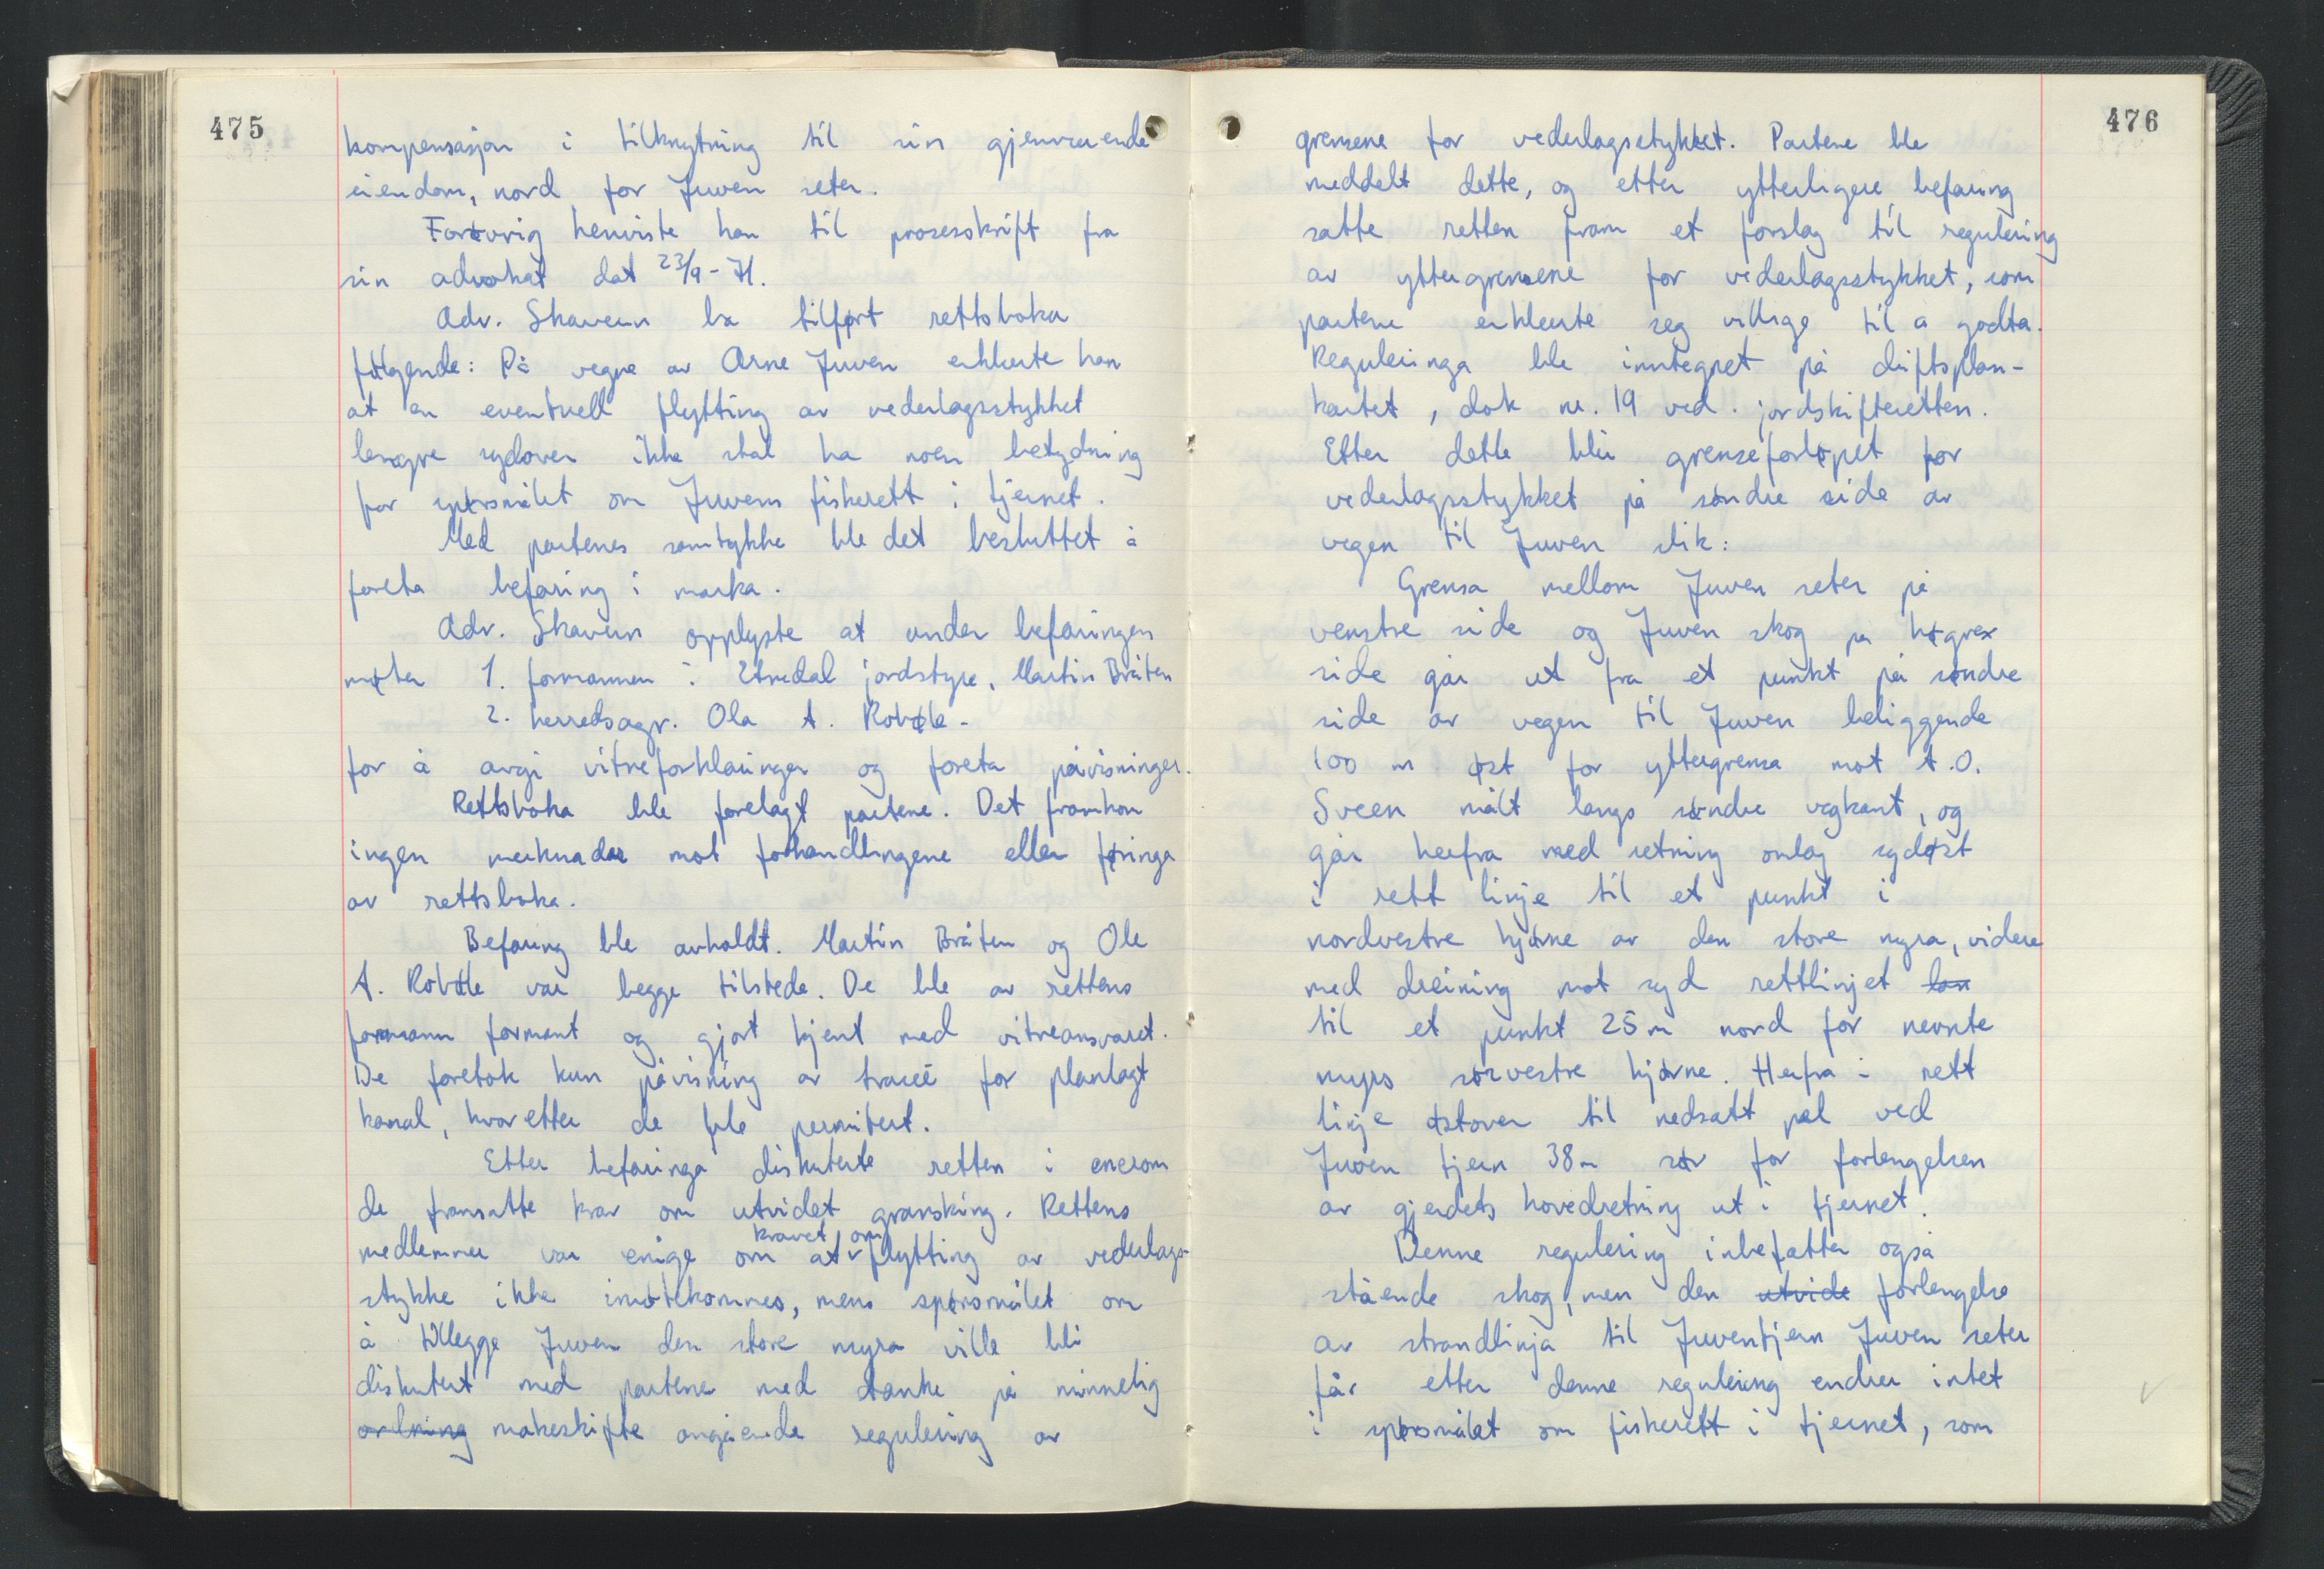 475
kompensasjon i tilknytning til sin gjenværende
eiendom, nord for Juven seter.
Forøvrig henviste han til prosesskrift fra
sin advokat dat 23/9-71.
Adv. Skavern ba tilført rettsboka
følgende: På vegne av Arne Juven erklærte han
at en eventuell flytting av vederlagsstykket
lengre sydover ikke skal ha noen betydning
for spørsmålet om Juvens fiskerett i tjernet.
Med partenes samtykke ble det besluttet å
foreta befaring i marka.
Adv. Skavern opplyste at under befaringen
møter 1. formannen i Etnedal jordstyre, Martin Bråten
2. herredsagr. Ola A. Robøle-
for å avgi vitneforklaringer og foreta påvisninger.
Rettsboka ble forelagt partene. Det framkom
ingen merknader mot forhandlingene eller føringa
av rettsboka.
Befaring ble avholdt. Martin Bråten og Ole
A. Robøle var begge tilstede. De ble av rettens
formann formant og gjort kjent med vitneansvaret.
De foretok kun påvisning av traceé for planlagt
kanal, hvoretter de ble permitert.
Etter befaringa diskuterte retten i enerom
de framsatte krav om utvidet gransking. Rettens
medlemmer var enige om at kravet om flytting av vederlags-
stykke ikke imøtekommes, mens spørsmålet om
å tillegge Juven den store myra ville bli
diskutert med partene med tanke på minnelig
ordning makeskifte angående regulering av
476
grensene for vederlagsstykket. Partene ble
meddelt dette, og etter ytterligere befaring
satte retten fram et forslag til regulering
av yttergrensene for vederlagsstykket, som
partene erklærte seg villige til a godta.
Reguleringa ble inntegnet på driftsplan-
kartet, dok nr. 19 ved jordskifteretten.
Etter dette blir grenseforløpet for
vederlagsstykket på søndre side av
vegen til Juven slik:
Grensa mellom Juven seter på
venstre side og Juven skog på høgre
side går ut fra et punkt på søndre
side av vegen til Juven beliggende
100 m øst for yttergrensa mot A.O.
Sveen målt langs søndre vegkant, og
går herfra med retning omlag sydøst
i rett linje til et punkt i
nordvestre hjørne av den store myra, videre
med dreining mot syd rettlinjet lan
til et punkt 25 m nord for nevnte
myrs sørvestre hjørne. Herfra i rett
linje østover til nedsatt pæl ved
Juven tjern 38 m sør for forlengelsen
av gjerdets hovedretning ut i tjernet.
Denne regulering inbefatter også
stående skog, men den utvide forlengelse
av strandlinja til Juventjern Juven seter
får etter denne regulering endrer intet
i spørsmålet om fiskerett i tjernet, som